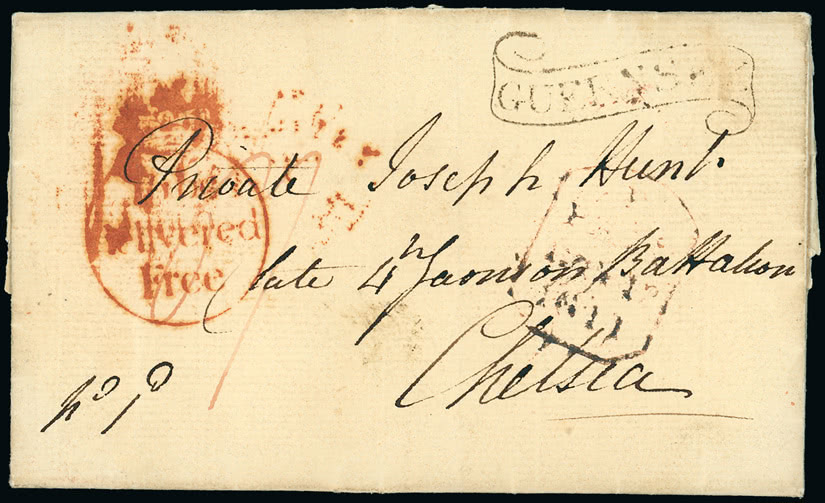 GUERNSEY
Private Joseph Hunt
Delivered
Free
late 4th Garrison Battalion
Chelsea
pd 1d